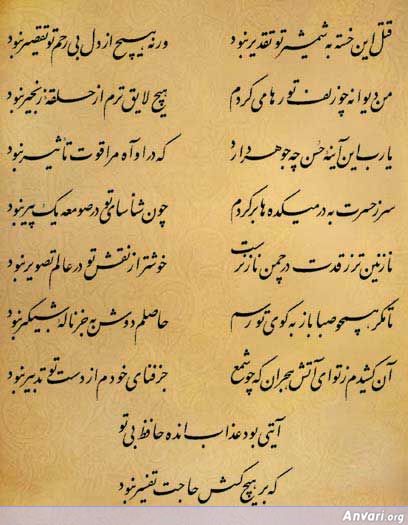 قتل این خسته به شمشیر تو تقدیر نبود ورنه هیچ از دل بی رحم تو تقصیر نبود
من دیوانه چو زلف تو رها می کردم هیچ لایق ترم از حلقه زنجیر نبود
یارب این آینه حسن چه جوهر دارد که در او آه مرا قوت تأثیر نبود
سر ز حسرت به در میکده ها بر کردم چون شناسای تو در صومعه یک پیر نبود
نازنین تر ز قدت در چمن ناز نرست خوشتر از نقش تو در عالم تصویر نبود
تا مگر همچو صبا باز به کوی تو رسم حاصلم دوش به جز ناله شبگیر نبود
آن کشیدم ز تو ای آتش هجران که چو شمع جز فنای خودم از دست تو تدبیر نبود
آیتی بود عذاب انده حافظ بی تو
که بر هیچ کسش حاجت تفسیر نبود
Anvari.org